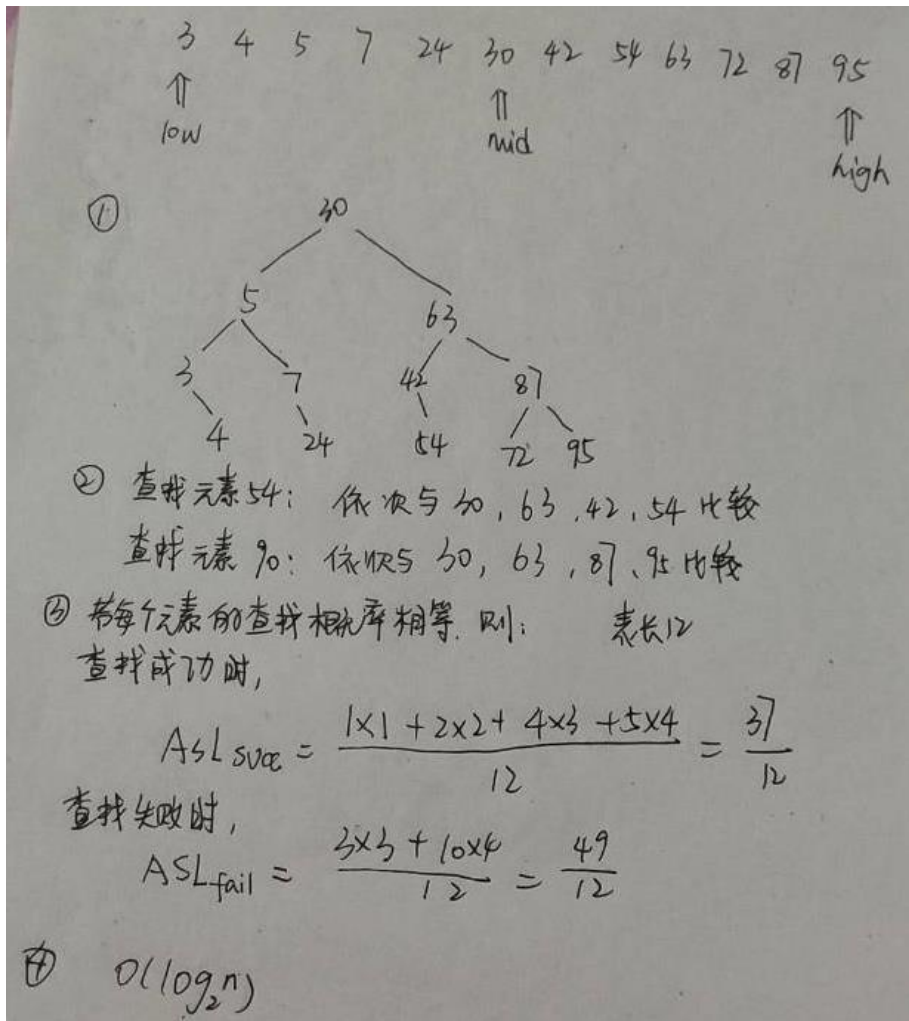 3 4 5 7 24 30 42 54 63 72 87 95
⇑ ⇑ ⇑
low mid high
① 30
5 63
3 7 42 87
4 24 54 72 95
② 查找元素54: 依次与30, 63, 42, 54比较
查找元素 90: 依次与 30, 63, 87、95比较
③ 若每个元素的查找概率相等. 则: 表长12
查找成功时,
ASL succ = (1×1+2×2+4×3+5×4)/12 = 37/12
查找失败时,
ASL fail = (3×3+10×4)/12 = 49/12
④ O(log₂n)